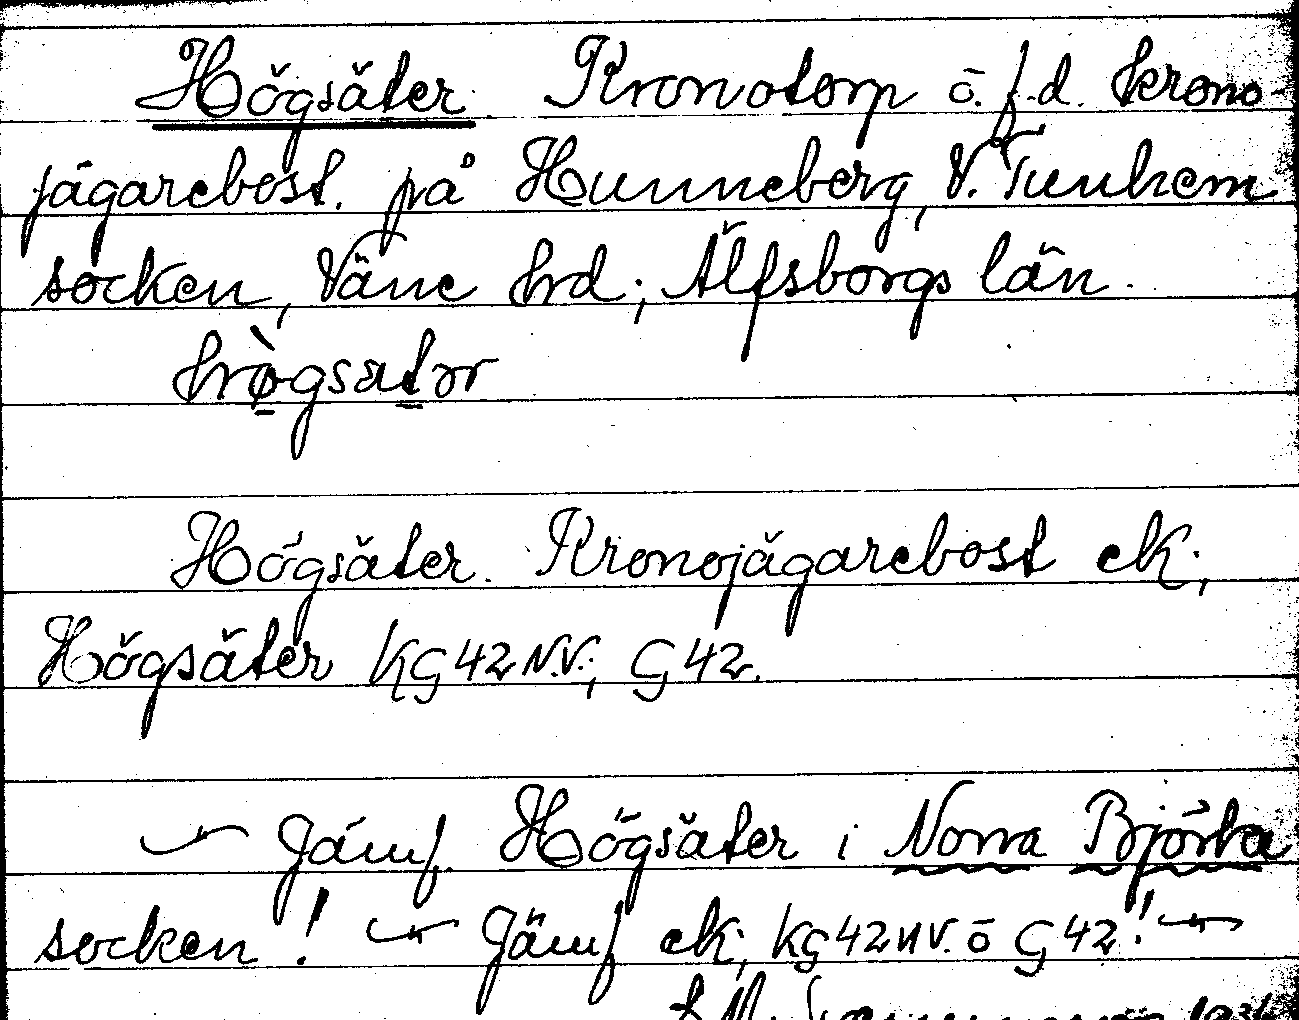 Högsäter Kronotorp ō. f.d. krono
jägarebost. på Hunneberg, V. Tunhem
socken, Väne hrd; Älfsborgs län.
Högsäter. Kronojägarebost ek;
Högsäter KG42N.V.; G42.
Jämf. Högsäter i Norra Björke
socken! Jämf ek, KG42NV. ō G42!